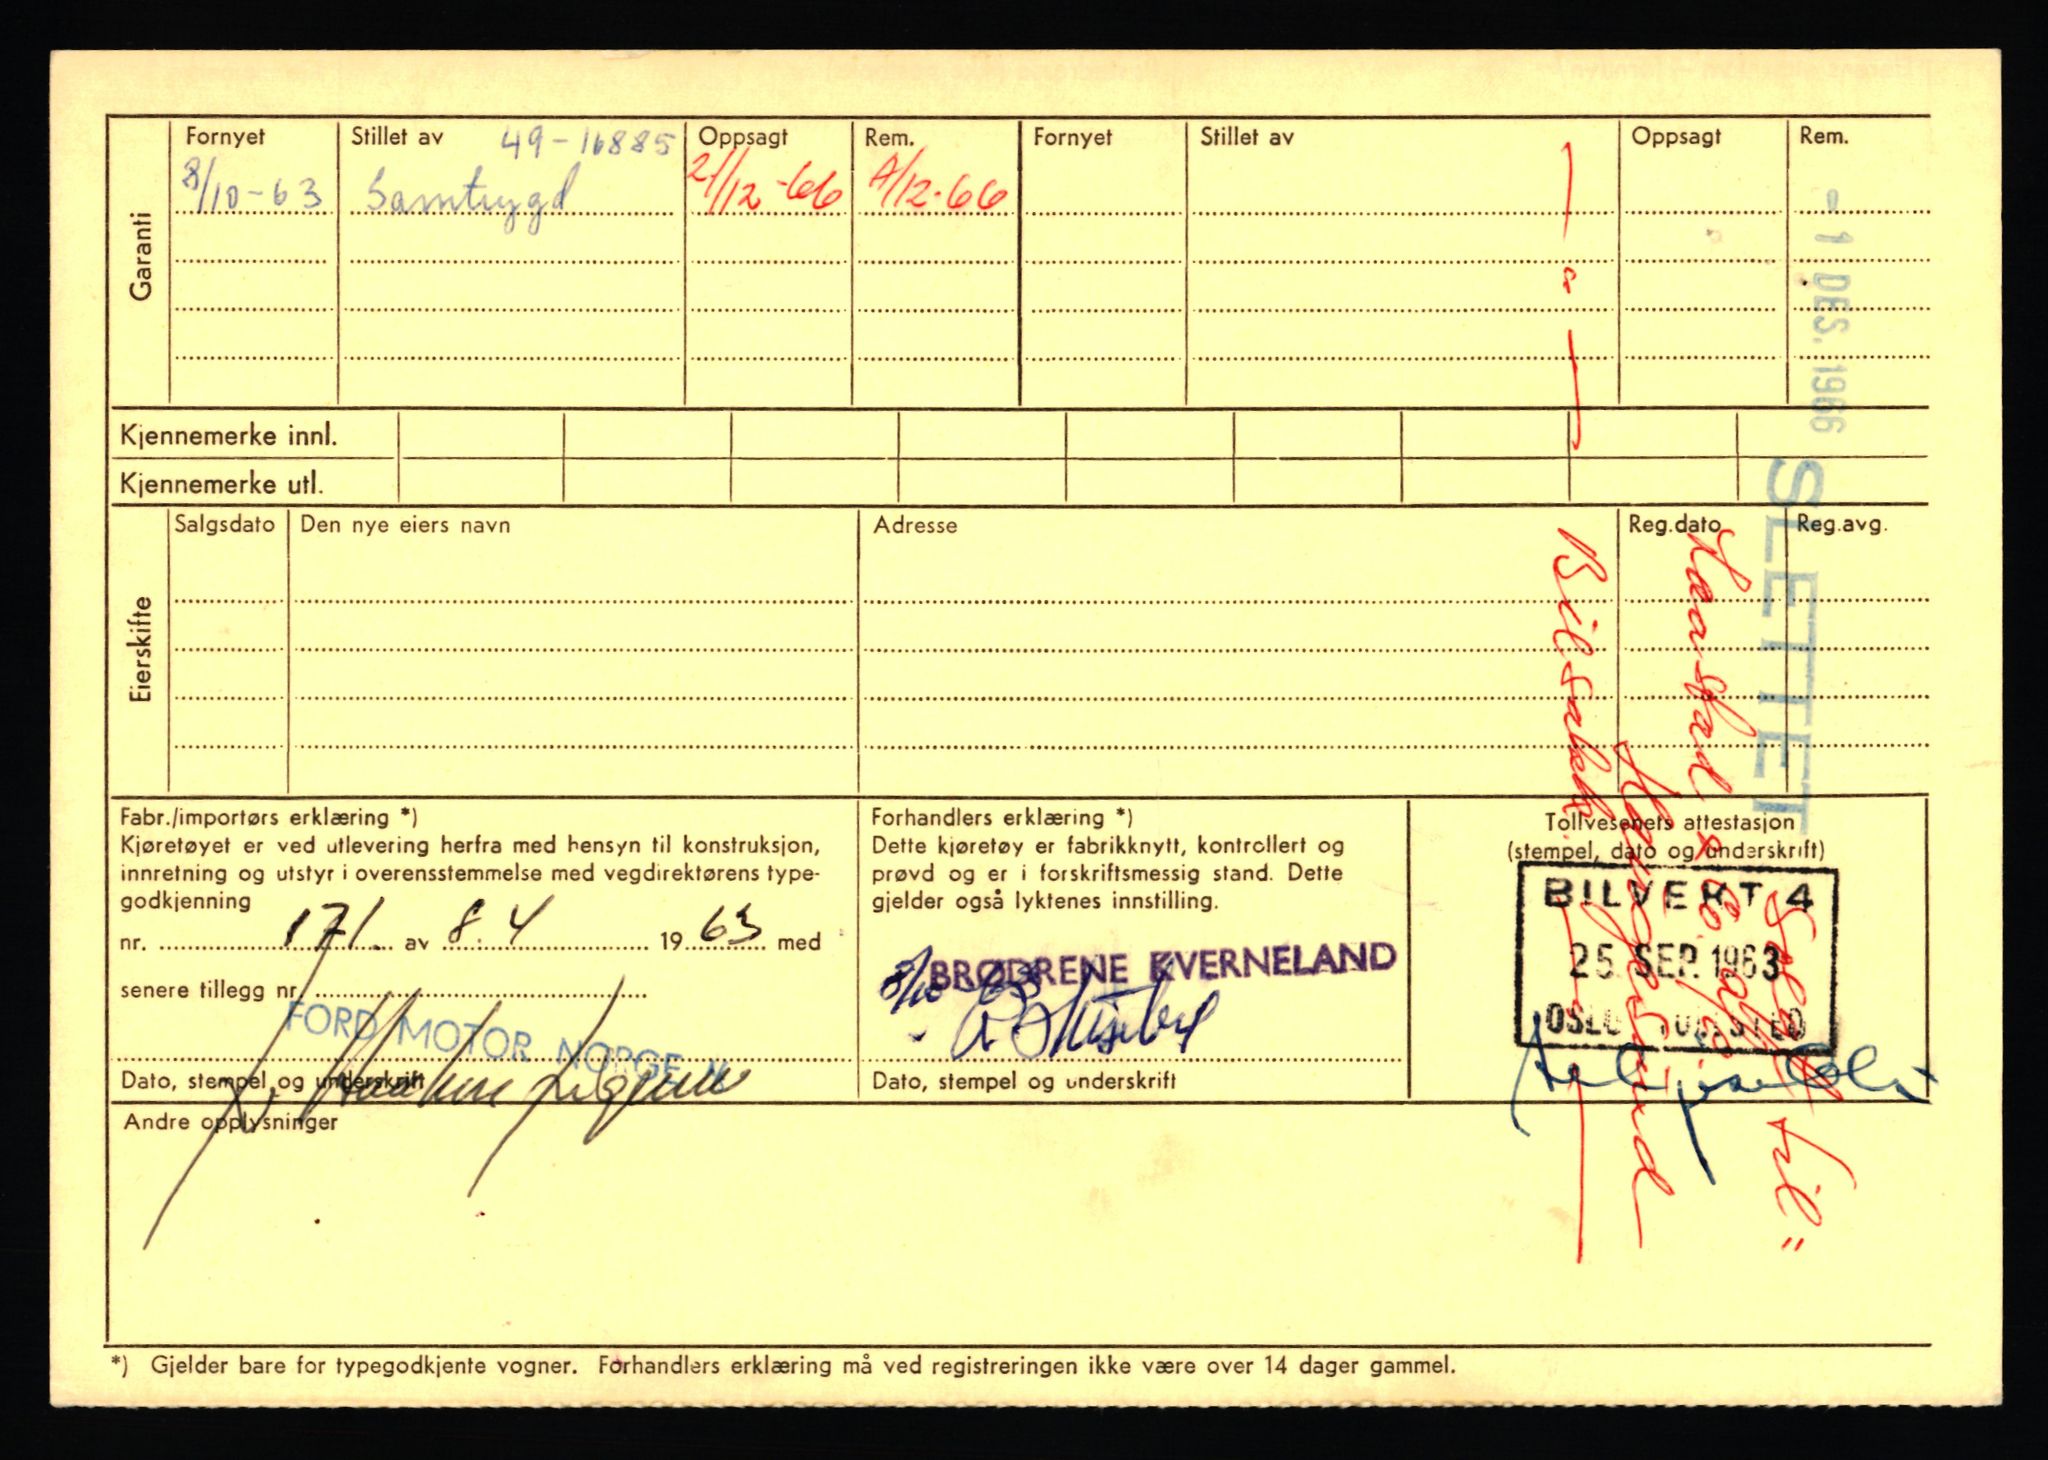 Garanti
Fornyet Stillet av 49-16885 Oppsagt Rem. Fornyet Stillet av Oppsagt Rem.
8/10-63 Samtrygd 21/12-66 /12-66
Kjennemerke innl.
Kjennemerke utl.
Eierskifte
Salgsdato Den nye eiers navn Adresse Reg.dato Reg.avg.
Fabr./importørs erklæring *)
Kjøretøyet er ved utlevering herfra med hensyn til konstruksjon,
innretning og utstyr i overensstemmelse med vegdirektørens type-
godkjenning
nr. 171. av 8.4 1963 med
senere tillegg nr.
FORD MOTOR NORGE
Dato, stempel og underskrift
Forhandlers erklæring *)
Dette kjøretøy er fabrikknytt, kontrollert og
prøvd og er i forskriftsmessig stand. Dette
gjelder også lyktenes innstilling.
BRØDRENE KVERNELAND
8/10 63
Dato, stempel og underskrift
Tollvesenets attestasjon
(stempel, dato og underskrift)
BILVERT 4
25. SEP. 1963
OSLO TOLLSTED
- 1 DES. 1966
SLETTET
Solgt til
Haugesund
Andre opplysninger
*) Gjelder bare for typegodkjente vogner. Forhandlers erklæring må ved registreringen ikke være over 14 dager gammel.